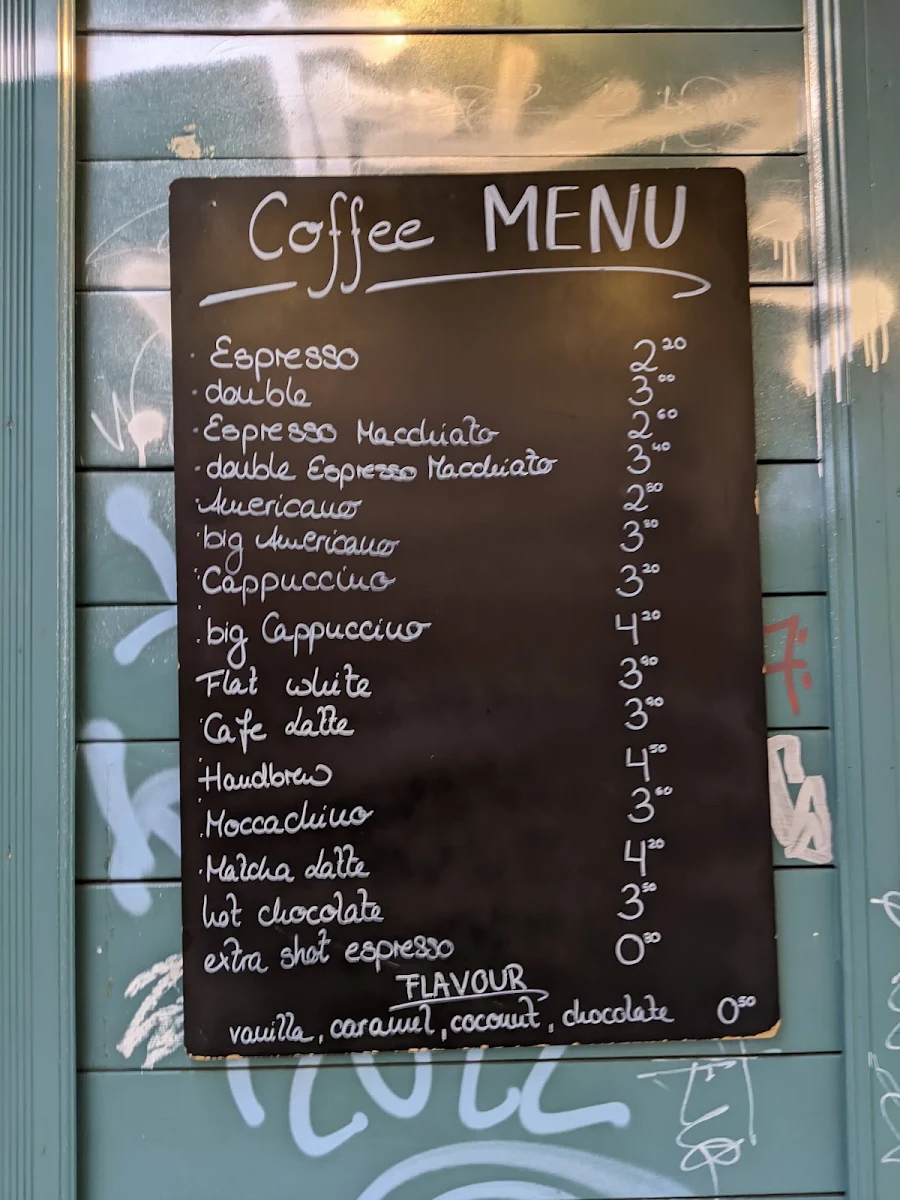 Coffee MENU
· Espresso 2 20
· double 3 00
· Espresso Macchiato 2 60
· double Espresso Macchiato 3 40
· Americano 2 80
· big Americano 3 80
· Cappuccino 3 20
· big Cappuccino 4 20
Flat white 3 90
· Cafe Latte 3 90
· Handbrew 4 50
· Moccachino 3 60
· Matcha Latte 4 20
hot chocolate 3 50
extra shot espresso 0 80
FLAVOUR
vanilla, caramel, coconut, chocolate 0 50